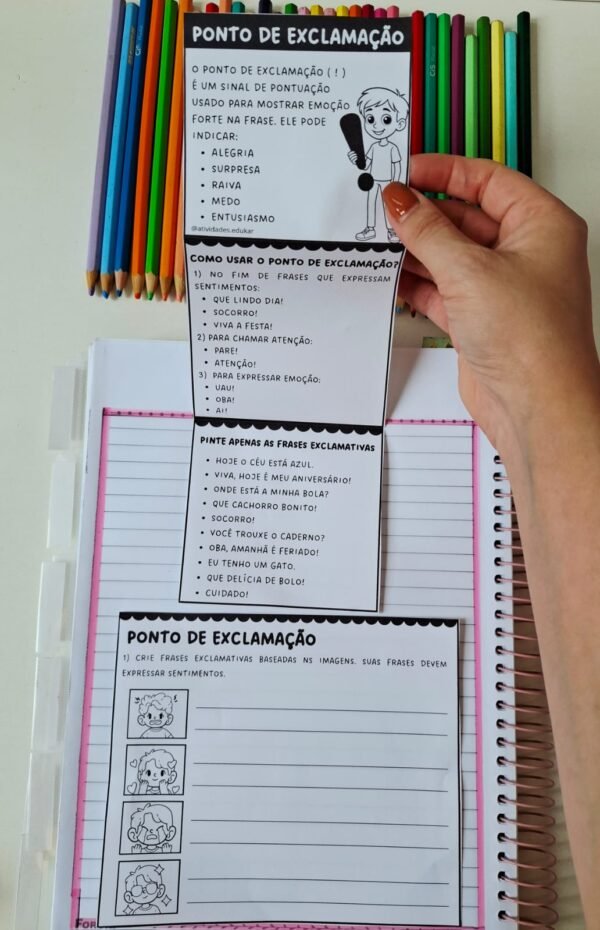 PONTO DE EXCLAMAÇÃO
O PONTO DE EXCLAMAÇÃO ( ! )
É UM SINAL DE PONTUAÇÃO
USADO PARA MOSTRAR EMOÇÃO
FORTE NA FRASE. ELE PODE
INDICAR:
• ALEGRIA
• SURPRESA
• RAIVA
• MEDO
• ENTUSIASMO
@atividades.edukar
COMO USAR O PONTO DE EXCLAMAÇÃO?
1) NO FIM DE FRASES QUE EXPRESSAM
SENTIMENTOS:
• QUE LINDO DIA!
• SOCORRO!
• VIVA A FESTA!
2) PARA CHAMAR ATENÇÃO:
• PARE!
• ATENÇÃO!
3) PARA EXPRESSAR EMOÇÃO:
• UAU!
• OBA!
• AI!
PINTE APENAS AS FRASES EXCLAMATIVAS
• HOJE O CÉU ESTÁ AZUL.
• VIVA, HOJE É MEU ANIVERSÁRIO!
• ONDE ESTÁ A MINHA BOLA?
• QUE CACHORRO BONITO!
• SOCORRO!
• VOCÊ TROUXE O CADERNO?
• OBA, AMANHÃ É FERIADO!
• EU TENHO UM GATO.
• QUE DELÍCIA DE BOLO!
• CUIDADO!
PONTO DE EXCLAMAÇÃO
1) CRIE FRASES EXCLAMATIVAS BASEADAS NS IMAGENS. SUAS FRASES DEVEM
EXPRESSAR SENTIMENTOS.